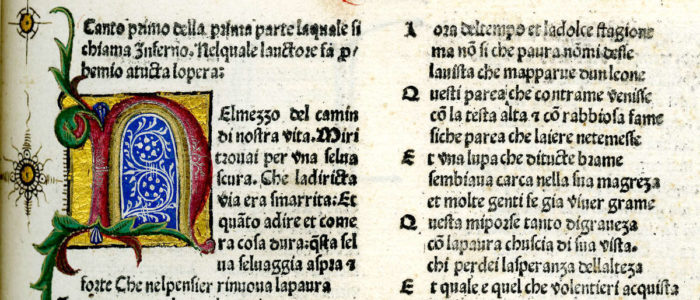 Canto primo della prima parte laquale si
chiama Inferno. Nelquale lauctore fa ꝓ
hemio atucta lopera:
NElmezzo del camin
di nostra vita. Mi ri
trouai per vna selua
scura. Che ladiricta
via era smarrita: Et
quāto adire et come
ra cosa dura: q̄sta sel
ua seluaggia aspra ⁊
forte Che nelpensier rinuoua lapaura
L ora deltempo et ladolce stagione
ma nō si che paura nōmi desse
lauista che mapparue dun leone
Q uesti parea che contrame venisse
cō la testa alta ⁊ cō rabbiosa fame
siche parea che laiere netemesse
E t vna lupa che ditucte brame
sembiaua carca nella sua magreza
et molte genti fe gia viuer grame
Q uesta miporse tanto digraueza
cō lapaura chuscia di sua vista.
chi perdei lasperanza dellalteza
E t quale e quel che volentieri acquista